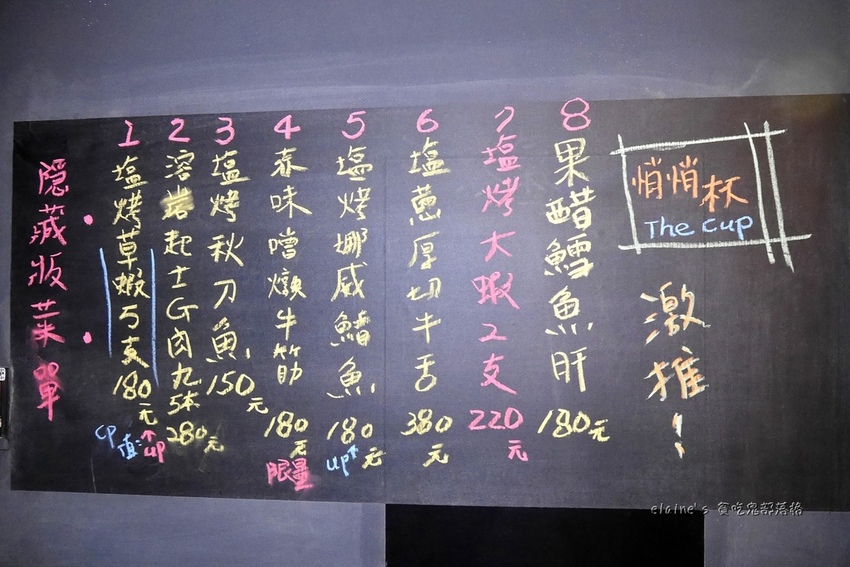 隱藏版菜單
1
塩烤草蝦5支
180元
CP值↑up
2
溶岩起士G肉丸5本
280元
3
塩烤秋刀魚
150元
4
赤味噌燉牛筋
180元
限量
5
塩烤挪威鯖魚
180元
up↑
6
塩蔥厚切牛舌
380元
7
塩烤大蝦2支
220元
8
果醋鱈魚肝
180元
悄悄杯
The Cup
激推!
elaine's 貪吃鬼部落格